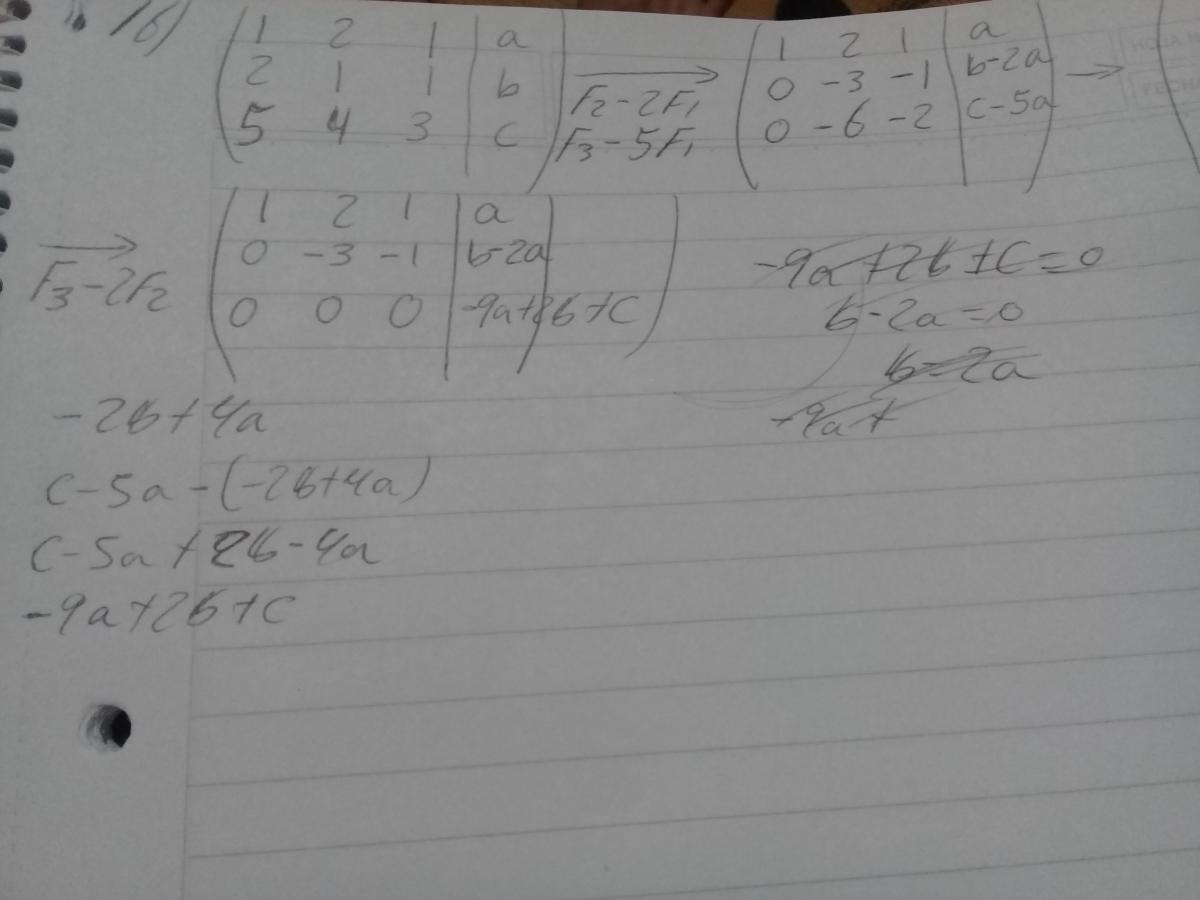 1b)
1 2 1 | a
2 1 1 | b
5 4 3 | c
F2-2F1
F3-5F1
1 2 1 | a
0 -3 -1 | b-2a
0 -6 -2 | c-5a
F3-2F2
1 2 1 | a
0 -3 -1 | b-2a
0 0 0 | -9a+2b+c
-9a+2b+c=0
b-2a=0
b=2a
-9a+
-2b+4a
c-5a-(-2b+4a)
c-5a+2b-4a
-9a+2b+c
HOJA N
FECH